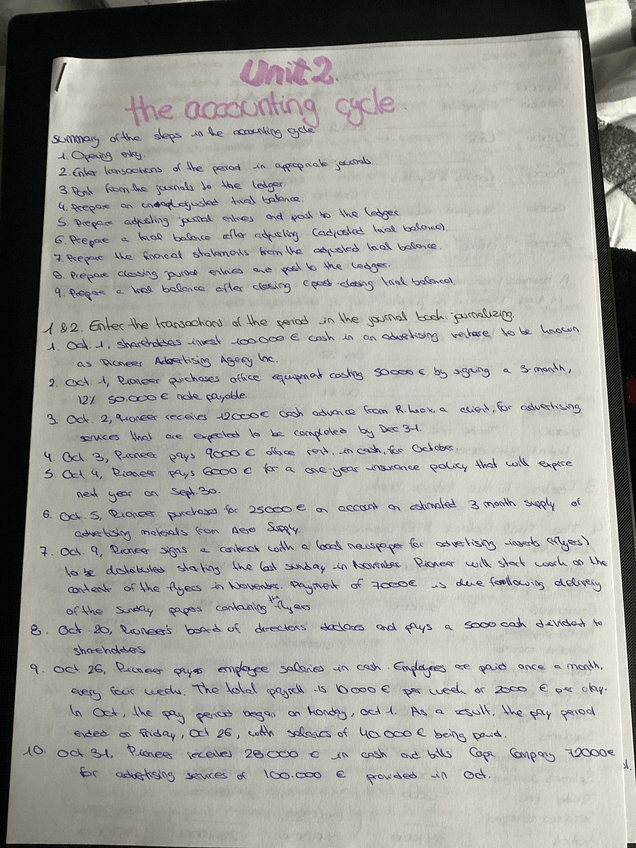 Unit 2.
the accounting cycle.
Summary of the steps in the accounting cycle
1. Opening entry.
2. Enter transactions of the period in appropriate journals.
3. Post from the journals to the ledger.
4. Prepare an unadjusted trial balance.
5. Prepare adjusting journal entries and post to the ledger
6. Prepare a trial balance after adjusting (adjusted trial balance).
7. Prepare the financial statements from the adjusted trial balance.
8. Prepare closing journal entries and post to the ledger.
9. Prepare a trial balance after closing (post-closing trial balance).
1 & 2. Enter the transactions of the period in the journal book: journalizing.
1. Oct. 1, shareholders invest 100 000 € cash in an advertising venture to be known
as Pioneer Advertising Agency Inc.
2. Oct 1, Pioneer purchases office equipment costing 50000 € by signing a 3-month,
12% 50.000 € note payable.
3. Oct. 2, Pioneer receives 12000 € cash advance from R. Knox a client, for advertising
services that are expected to be completed by Dec 31.
4. Oct. 3, Pioneer pays 9000 € office rent, in cash, for October.
5. Oct 4, Pioneer pays 6000 € for a one-year insurance policy that will expire
next year on Sept. 30.
6. Oct. 5, Pioneer purchases for 25000 € on account an estimated 3 month supply of
advertising materials from Aero Supply.
7. Oct. 9, Pioneer signs a contract with a local newspaper for advertising inserts (flyers)
to be distributed starting the last sunday in November. Pioneer will start work on the
content of the flyers in November. Payment of 7000€ is due following delivery
of the Sunday papers containing the flyers
8. Oct 20, Pioneer's board of directors declares and pays a 5000 cash dividend to
shareholders
9. Oct 26, Pioneer payes employee salaries in cash. Employees are paid once a month,
every four weeks. The total payroll is 10 000 € per week or 2000 € per day.
In Oct, the pay period began on Monday, oct 1. As a result, the pay period
ended on Friday, Oct 26, with salaries of 40.000 € being paid.
10. Oct. 31, Pioneer receives 28 000 € in cash and bills Copa Company 72000€
for advertising services of 100.000 € provided in Oct.